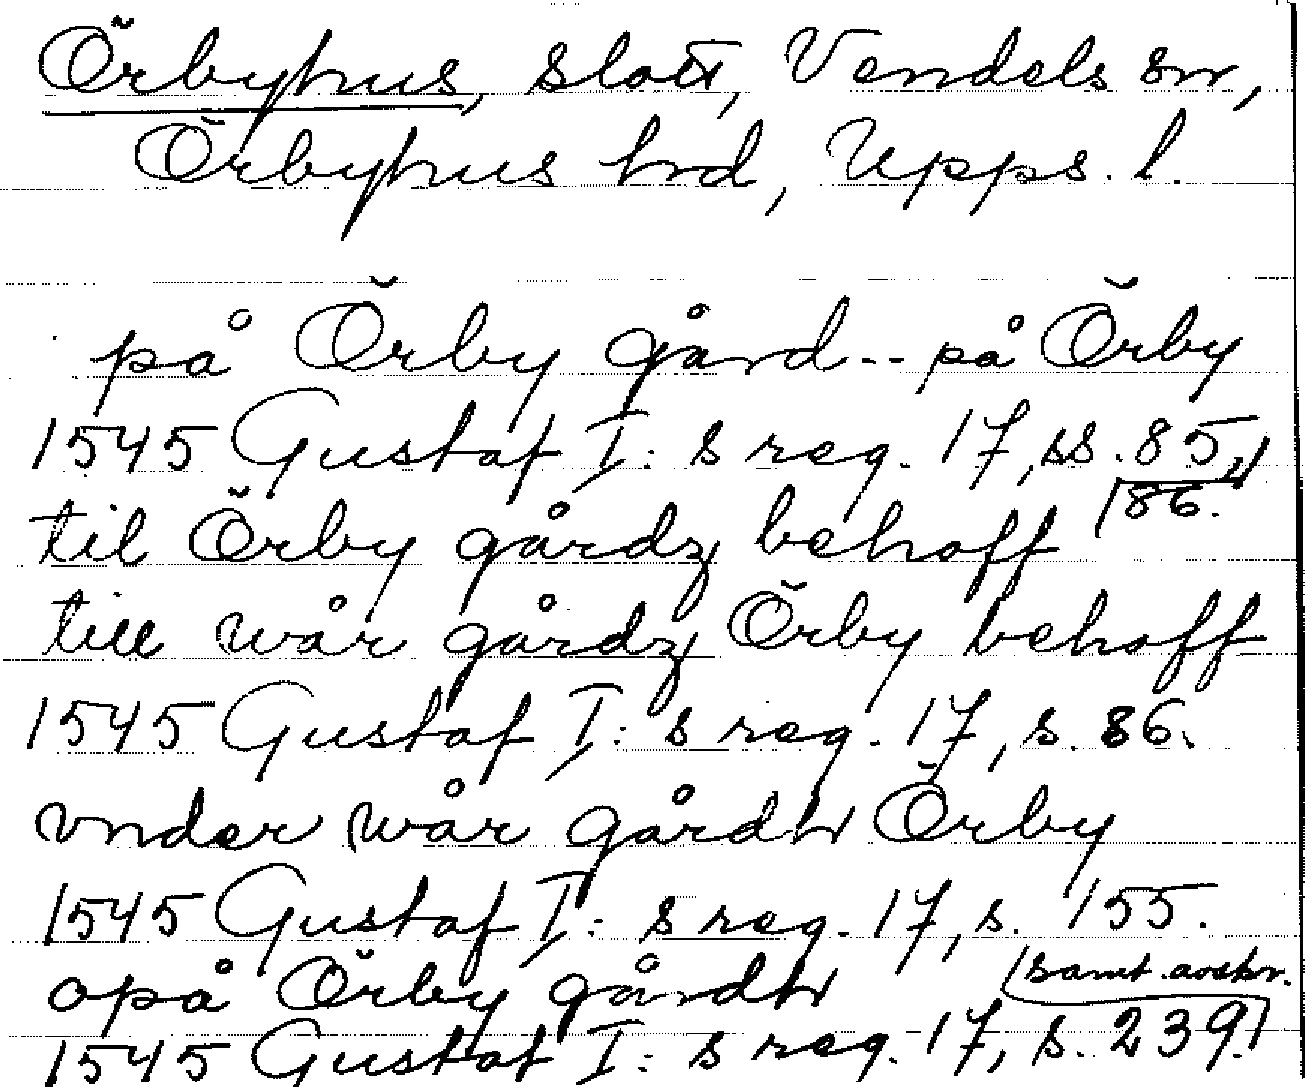 Örbyhus, slott, Vendels sn,
Örbyhus hrd, Upps. l.
på Örby gård -- på Örby
1545 Gustaf I:s reg. 17, ss. 85,
86.
til Örby gårdz behoff
till wår gårdz Örby behoff
1545 Gustaf I:s reg. 17, s. 86.
vnder wår gårdh Örby
1545 Gustaf I:s reg. 17, s. 155.
opå Örby gårdh
(samt. avskr.
1545 Gustaf I:s reg. 17, s. 239)